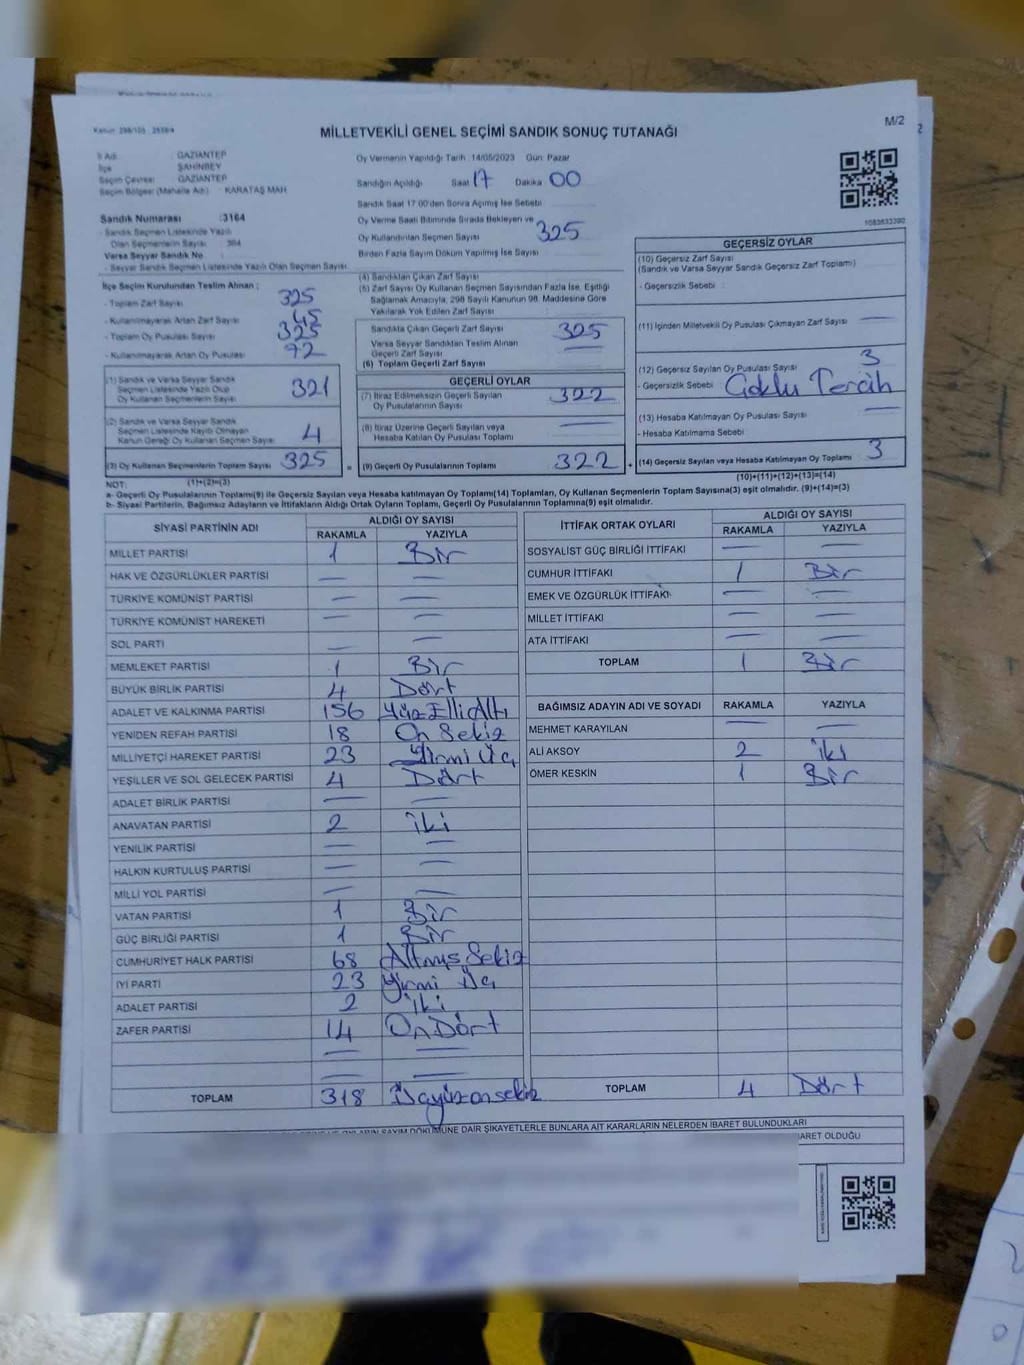 M/2
Kanun: 298/105 : 2839/4
MİLLETVEKİLİ GENEL SEÇİMİ SANDIK SONUÇ TUTANAĞI
İl Adı : GAZİANTEP
İlçe : ŞAHİNBEY
Seçim Çevresi : GAZİANTEP
Seçim Bölgesi (Mahalle Adı) : KARATAŞ MAH
Sandık Numarası :3164
- Sandık Seçmen Listesinde Yazılı
Olan Seçmenlerin Sayısı : 364
Varsa Seyyar Sandık No
- Seyyar Sandık Seçmen Listesinde Yazılı Olan Seçmen Sayısı:
Oy Vermenin Yapıldığı Tarih :14/05/2023 Gün: Pazar
Sandığın Açıldığı Saat 17 Dakika 00
Sandık Saat 17:00'den Sonra Açılmış İse Sebebi
Oy Verme Saati Bitiminde Sırada Bekleyen ve
Oy Kullandırılan Seçmen Sayısı 325
Birden Fazla Sayım Döküm Yapılmış İse Sayısı
1083633200
İlçe Seçim Kurulundan Teslim Alınan ;
- Toplam Zarf Sayısı 325
- Kullanılmayarak Artan Zarf Sayısı 45
- Toplam Oy Pusulası Sayısı 325
- Kullanılmayarak Artan Oy Pusulası 72
(1) Sandık ve Varsa Seyyar Sandık
Seçmen Listesinde Yazılı Olup
Oy Kullanan Seçmenlerin Sayısı 321
(2) Sandık ve Varsa Seyyar Sandık
Seçmen Listesinde Kayıtlı Olmayan
Kanun Gereği Oy Kullanan Seçmen Sayısı 4
(3) Oy Kullanan Seçmenlerin Toplam Sayısı 325
(1)+(2)=(3)
(4) Sandıktan Çıkan Zarf Sayısı
(5) Zarf Sayısı Oy Kullanan Seçmen Sayısından Fazla İse, Eşitliği
Sağlamak Amacıyla, 298 Sayılı Kanunun 98. Maddesine Göre
Yakılarak Yok Edilen Zarf Sayısı
Sandıkta Çıkan Geçerli Zarf Sayısı 325
Varsa Seyyar Sandıktan Teslim Alınan
Geçerli Zarf Sayısı —
(6) Toplam Geçerli Zarf Sayısı
GEÇERLİ OYLAR
(7) İtiraz Edilmeksizin Geçerli Sayılan
Oy Pusulalarının Sayısı 322
(8) İtiraz Üzerine Geçerli Sayılan veya
Hesaba Katılan Oy Pusulası Toplamı —
= (9) Geçerli Oy Pusulalarının Toplamı 322 +
GEÇERSİZ OYLAR
(10) Geçersiz Zarf Sayısı
(Sandık ve Varsa Seyyar Sandık Geçersiz Zarf Toplamı)
- Geçersizlik Sebebi :
(11) İçinden Milletvekili Oy Pusulası Çıkmayan Zarf Sayısı —
(12) Geçersiz Sayılan Oy Pusulası Sayısı 3
- Geçersizlik Sebebi Çoklu Tercih
(13) Hesaba Katılmayan Oy Pusulası Sayısı —
- Hesaba Katılmama Sebebi
(14) Geçersiz Sayılan veya Hesaba Katılmayan Oy Toplamı 3
(10)+(11)+(12)+(13)=(14)
NOT:
a- Geçerli Oy Pusulalarının Toplamı(9) ile Geçersiz Sayılan veya Hesaba katılmayan Oy Toplamı(14) Toplamları, Oy Kullanan Seçmenlerin Toplam Sayısına(3) eşit olmalıdır. (9)+(14)=(3)
b- Siyasi Partilerin, Bağımsız Adayların ve İttifakların Aldığı Ortak Oyların Toplamı, Geçerli Oy Pusulalarının Toplamına(9) eşit olmalıdır.
SİYASİ PARTİNİN ADI ALDIĞI OY SAYISI
RAKAMLA YAZIYLA
MİLLET PARTİSİ 1 Bir
HAK VE ÖZGÜRLÜKLER PARTİSİ — —
TÜRKİYE KOMÜNİST PARTİSİ — —
TÜRKİYE KOMÜNİST HAREKETİ — —
SOL PARTİ — —
MEMLEKET PARTİSİ 1 Bir
BÜYÜK BİRLİK PARTİSİ 4 Dört
ADALET VE KALKINMA PARTİSİ 156 Yüz Elli Altı
YENİDEN REFAH PARTİSİ 18 On Sekiz
MİLLİYETÇİ HAREKET PARTİSİ 23 Yirmi Üç
YEŞİLLER VE SOL GELECEK PARTİSİ 4 Dört
ADALET BİRLİK PARTİSİ — —
ANAVATAN PARTİSİ 2 iki
YENİLİK PARTİSİ — —
HALKIN KURTULUŞ PARTİSİ — —
MİLLİ YOL PARTİSİ — —
VATAN PARTİSİ 1 Bir
GÜÇ BİRLİĞİ PARTİSİ 1 Bir
CUMHURİYET HALK PARTİSİ 68 Altmış Sekiz
İYİ PARTİ 23 Yirmi Üç
ADALET PARTİSİ 2 iki
ZAFER PARTİSİ 14 On Dört
— —
—
TOPLAM 318 Üçyüzonsekiz
İTTİFAK ORTAK OYLARI ALDIĞI OY SAYISI
RAKAMLA YAZIYLA
SOSYALİST GÜÇ BİRLİĞİ İTTİFAKI — —
CUMHUR İTTİFAKI 1 Bir
EMEK VE ÖZGÜRLÜK İTTİFAKI — —
MİLLET İTTİFAKI — —
ATA İTTİFAKI — —
TOPLAM 1 Bir
BAĞIMSIZ ADAYIN ADI VE SOYADI RAKAMLA YAZIYLA
MEHMET KARAYILAN — —
ALİ AKSOY 2 iki
ÖMER KESKİN 1 Bir
TOPLAM 4 Dört
OYLARIN SAYIM DÖKÜMÜNE DAİR ŞİKAYETLERLE BUNLARA AİT KARARLARIN NELERDEN İBARET BULUNDUKLARI
İBARET OLDUĞU